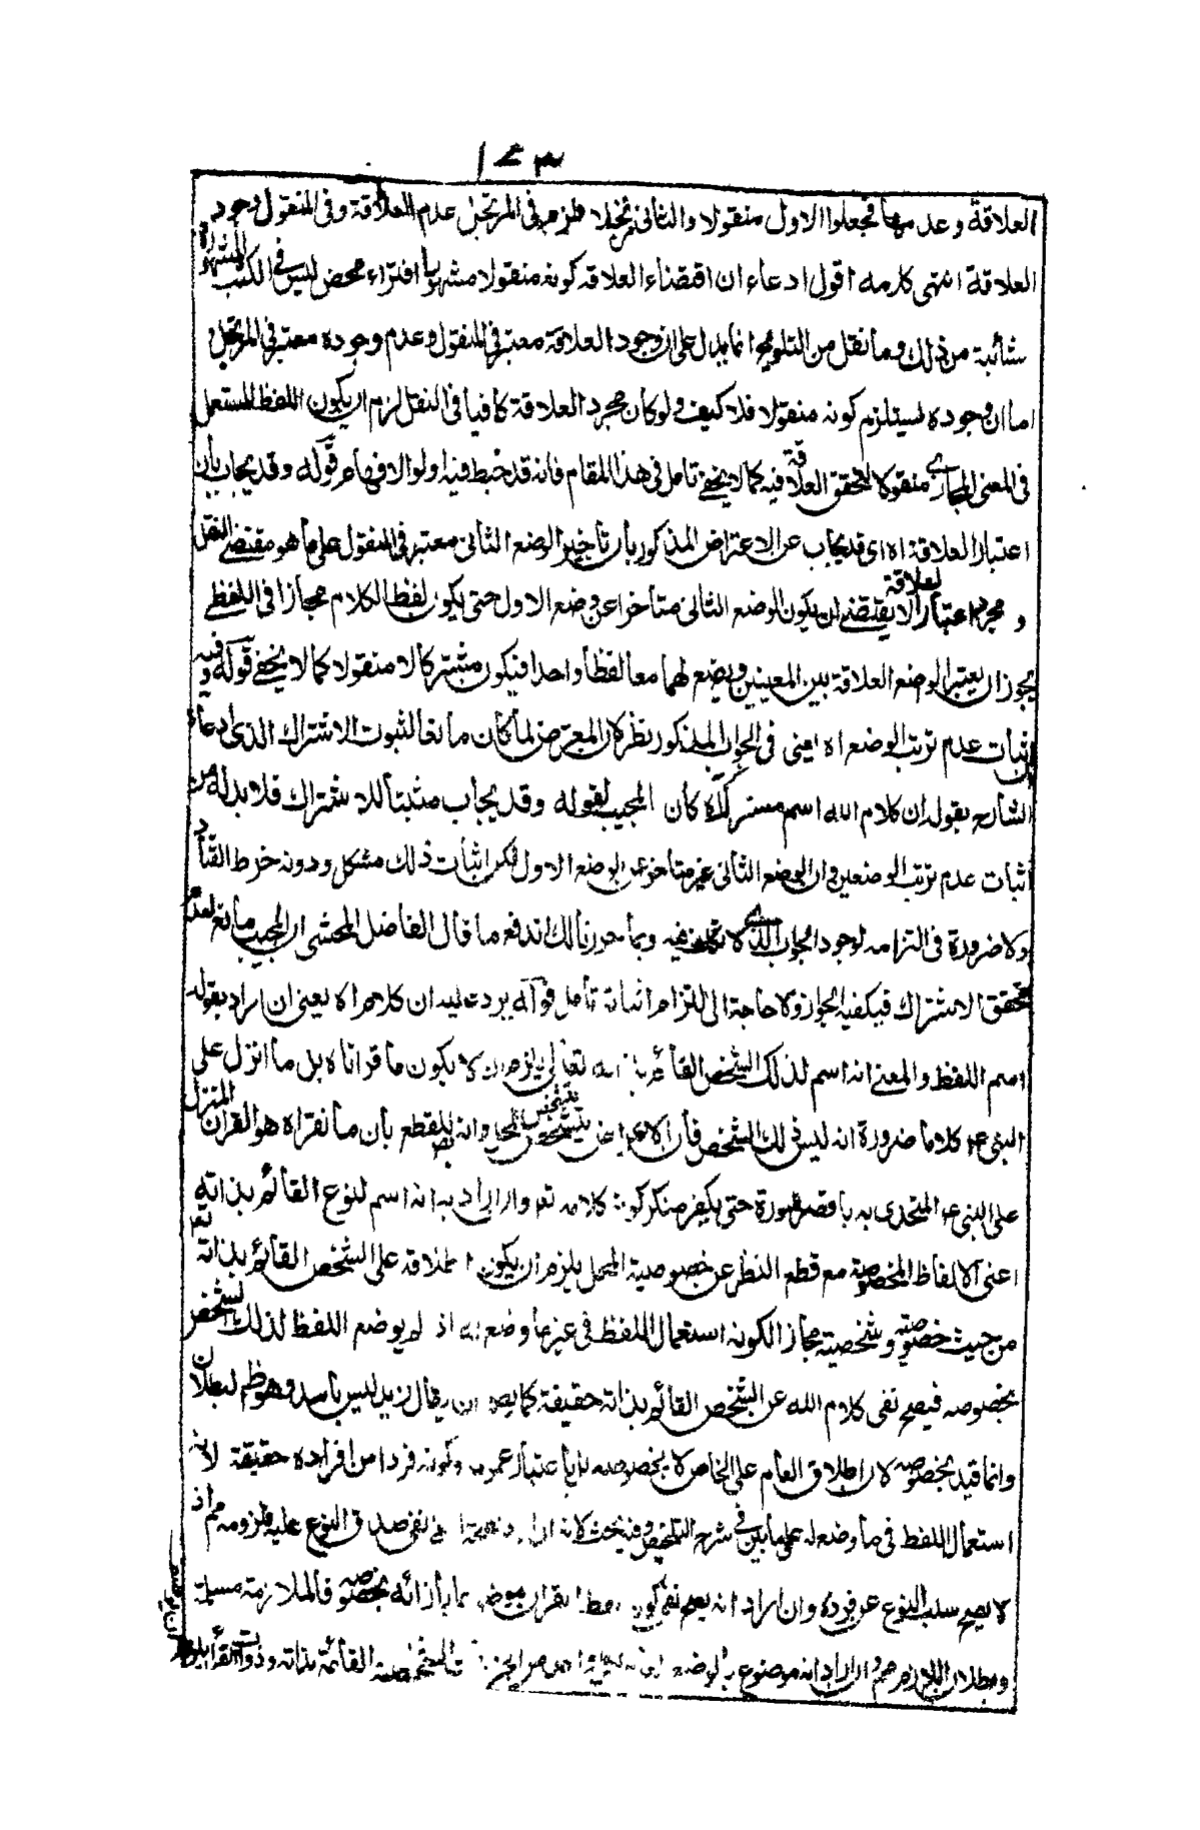 ١٧٣
العلاقة وعدمها فجعلوا الاول منقولا والثانى مرتجلا فلزم فى المرتجل عدم العلاقة وفى المنقول وجود
العلاقة انتهى كلامه اقول ادعاء ان اقتضاء العلاقة كونه منقولا مشهور يا افتراء محض ليس فى الكتب المشهورة
شائبة من ذلك وما نقل من التلويح انما يدل على ان وجود العلاقة معتبر فى المنقول وعدم وجوده معتبر فى المرتجل و
اما ان وجوده يستلزم كونه منقولا فلا كيف ولو كان مجرد العلاقة كافيا فى النقل لزم ان يكون اللفظ المستعمل
فى المعنى المجازى منقولا لتحقق العلاقة فيه كما لا يخفى تامل فى هذا المقام فانه قد خبط فيه اولوا الافهام قوله وقد يجاب بان
اعتبار العلاقة اه اى قد يجاب عن الاعتراض المذكور بان تاخير الوضع الثانى معتبر فى المنقول على ما هو مقتضى النقل
و مجرد اعتبار العلاقة لا يقتضى ان يكون الوضع الثانى متأخرا عن وضع الاول حتى يكون لفظ الكلام مجازا فى اللفظ
يجوز ان يعتبر الوضع العلاقة بين المعنيين ويضع لهما معا لفظا واحدا فيكون مشتركا لا منقولا كما لا يخفى قوله وفيه
اثبات عدم ترتب الوضع اه يعنى فى الجواب المذكور نظر كان المعترض لما كان مانعا لثبوت الاشتراك الذى ادعاه
الشارح بقوله ان كلام الله اسم مشترك اه كان المجيب لقوله وقد يجاب مثبتا للاشتراك فلا بد له من
اثبات عدم ترتب الوضعين وان الوضع الثانى غير متأخر عن الوضع الاول لكن اثبات ذلك مشكل ودونه خرط القتاد
ولا ضرورة فى التزامه لوجود الجواب الذى لا تكلف فيه وبما حررنا لك اندفع ما قال الفاضل المحشى ان المجيب مانع لعدم
تحقق الاشتراك فيكفيه الجواز ولا حاجة الى التزام اثباته تأمل قوله يرد عليه ان كلامه اه يعنى ان اراد بقوله
اسم اللفظ والمعنى انه اسم لذلك الشخص القائم بذاته تعالى يلزم ان لا يكون ما قرأناه بل ما انزل على
النبى ع م كلاما ضرورة انه ليس ذلك الشخص فان الاعراض يتشخص بتشخص المحل وانه بط للقطع بان ما نقرأه هو القرآن المنزل
على النبى ع م المتحدى به باقصر سورة حتى يكفر منكر كونه كلامه تعم وان اراد به انه اسم لنوع القائم بذاته
اعنى الالفاظ المخصوصة مع قطع النظر عن خصوصية المحل يلزم ان يكون اطلاقه على الشخص القائم بذاته تعم
من حيث خصوصيته وشخصيته مجازا لكونه استعمال اللفظ فى غير ما وضع له اذ لم يوضع اللفظ لذلك الشخص
بخصوصه فيصح نفى كلام الله عن الشخص القائم بذاته حقيقة كما يصح ان يقال زيد ليس باسد وهو ظ البطلان
وانما قيد بخصوصه لان اطلاق العام على الخاص لا بخصوصه بل باعتبار عمومه وكونه فردا من افراده حقيقة لانه
استعمال اللفظ فى ما وضع له على ما بين فى شرح التلخيص وفيه بحث لانه ان اراد صحة نفى صدق النوع عليه فلزومه مم اذ
لا يصح سلب النوع عن فرده وان اراد انه يصح نفى كون لفظ القرآن موضوعا بازائه بخصوصه فالملازمة مسلمة
وبطلان اللازم مم وان اراد انه موضوع بالوضع القائمة بذاته